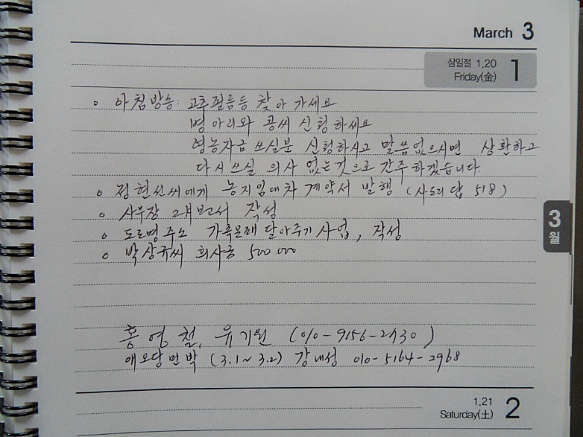 March 3
삼일절 1.20
Friday(金) 1
◦ 아침방송: 고추필름등 찾아가세요
병아리와 콩씨 신청하세요
영농자금 쓰실분 신청하시고 말씀없으시면 상환하고
다시 쓰실 의사 없는것으로 간주 하겠습니다
◦ 정현선씨에게 농지임대차 계약서 발행 (사도리 답 518)
◦ 사무장 고개보고서 작성
◦ 도로명주소 가로문패 달아주기 사업, 작성
◦ 박상규씨 회사금 500000
3
월
홍영철, 유기원 (010-9156-2430)
매오당민박 (3.1~3.2) 강내성 010-5164-2968
1.21
Saturday(土) 2